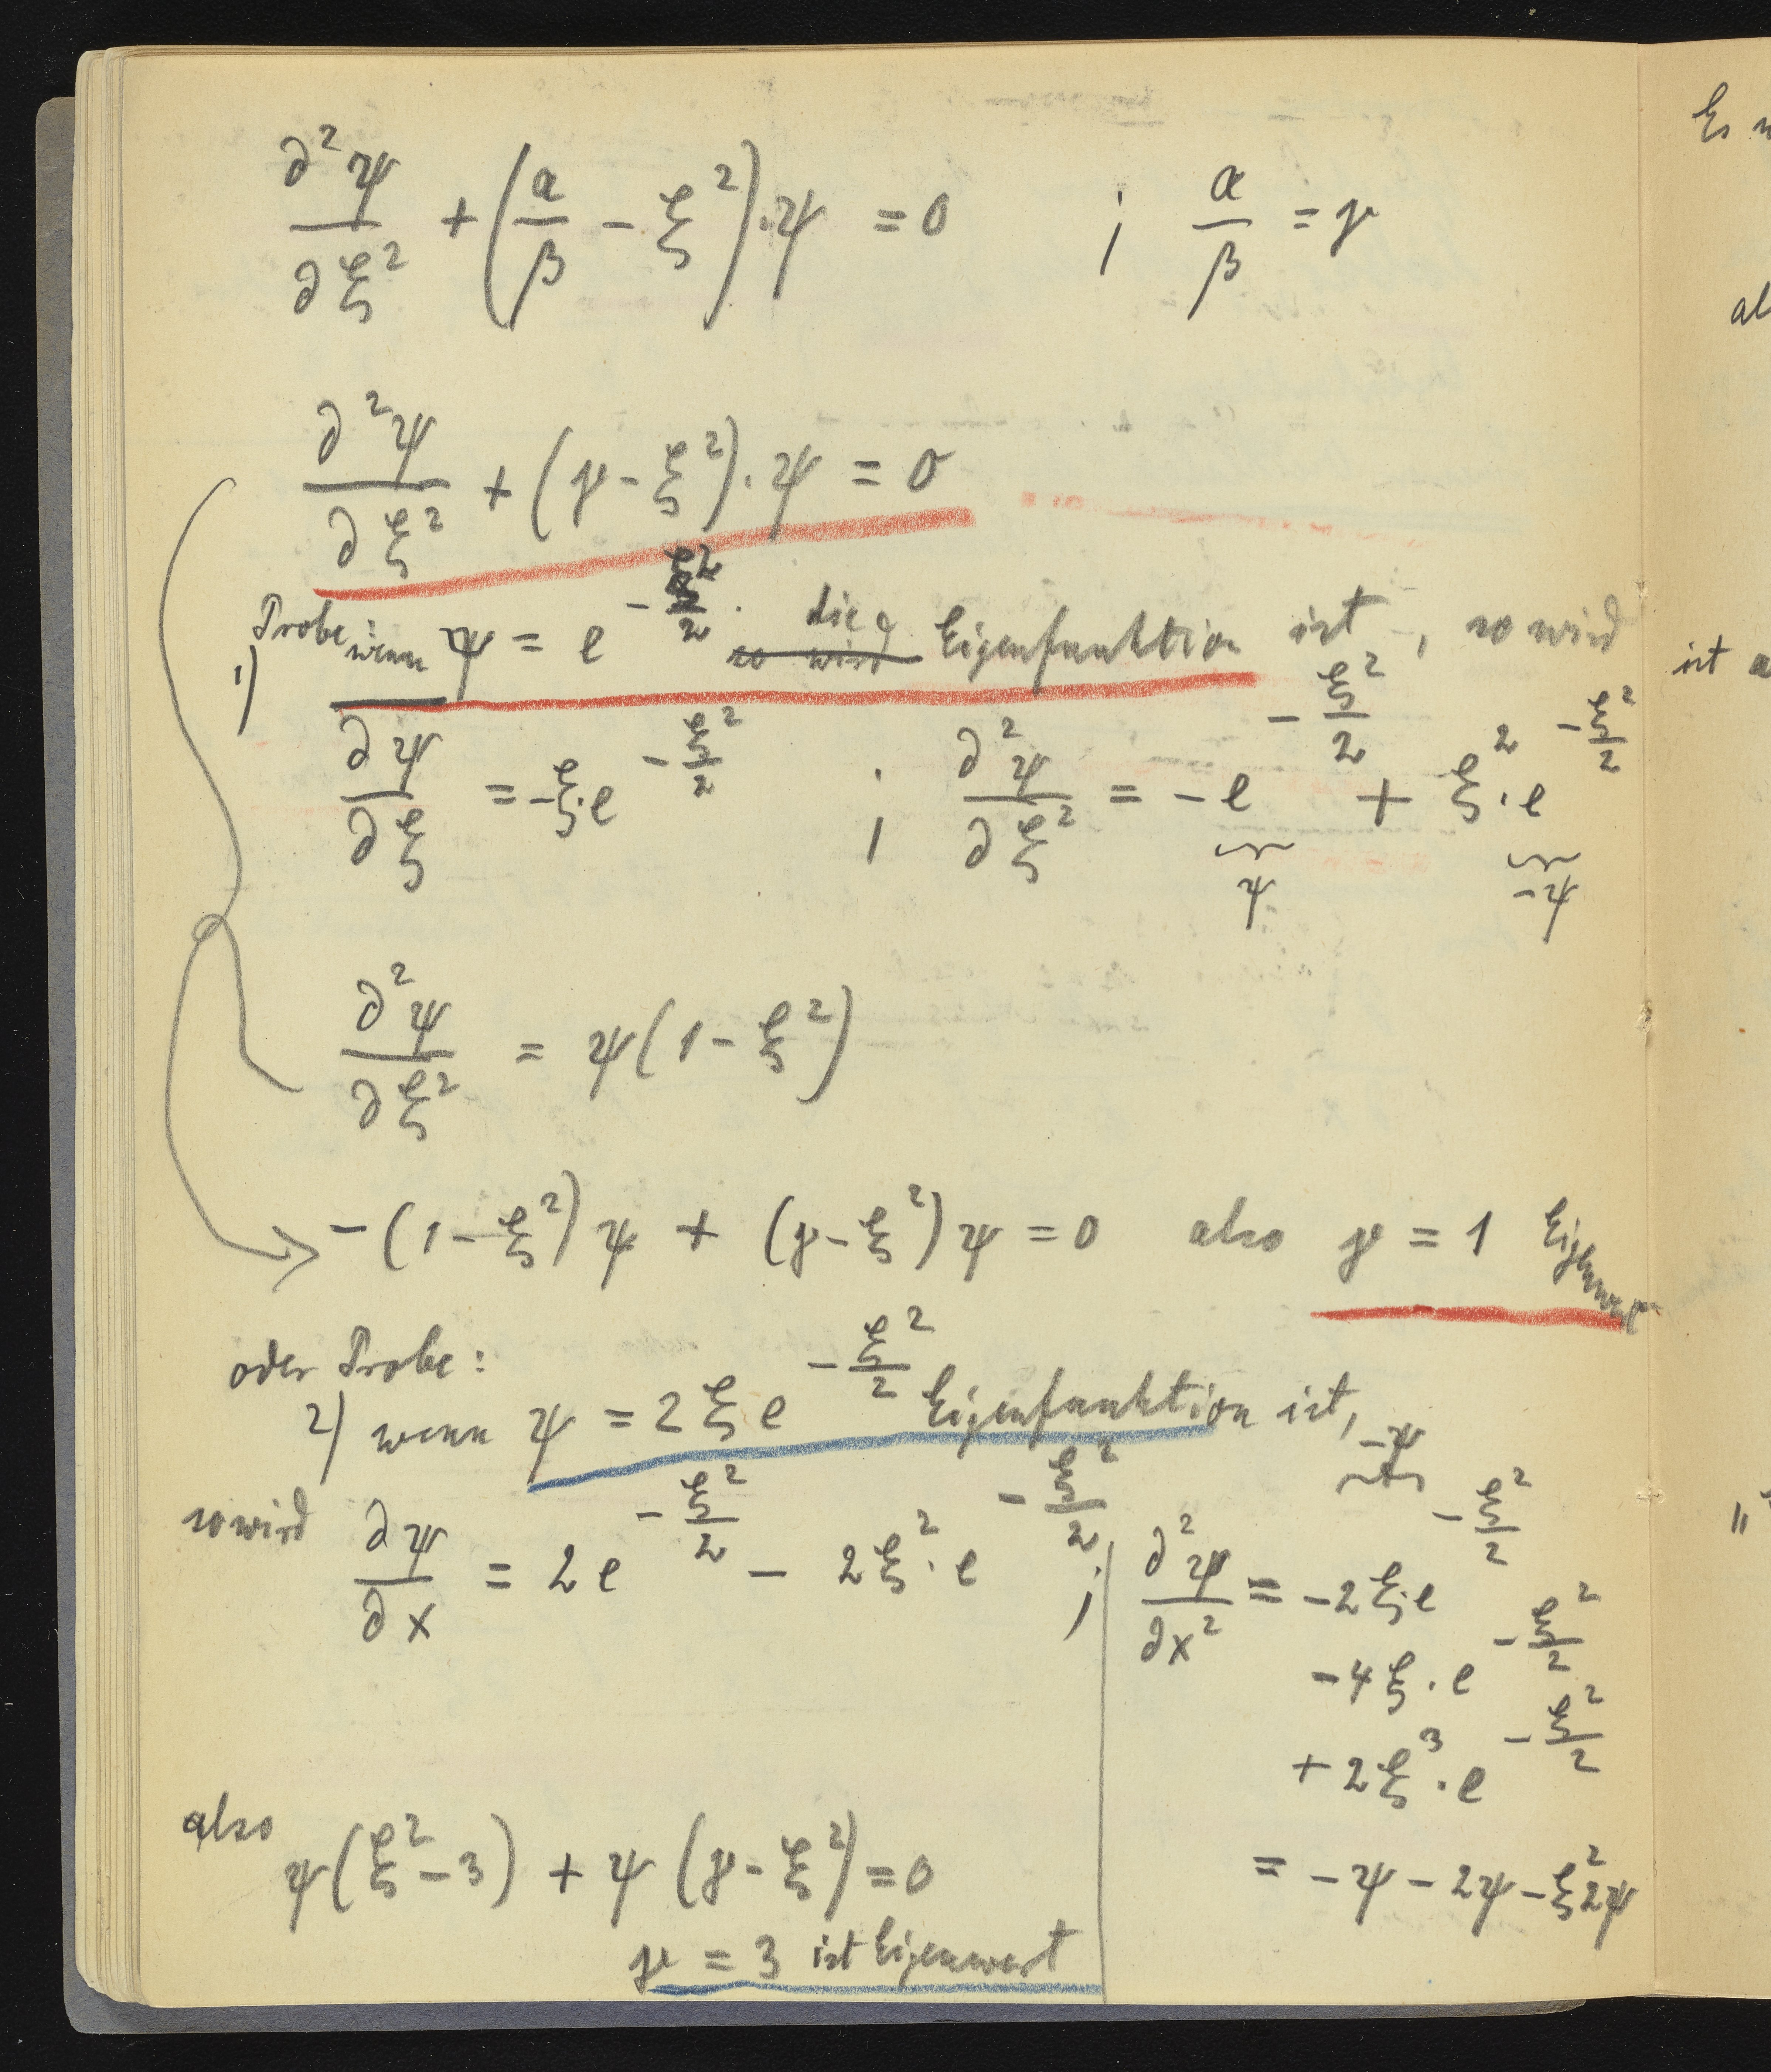 ∂²ψ/∂ξ² + (α/β − ξ²)·ψ = 0 ; α/β = γ
∂²ψ/∂ξ² + (γ − ξ²)·ψ = 0
1) Probe: wenn ψ = e^(−ξ²/2) · so wird die Eigenfunktion ist, so wird
∂ψ/∂ξ = −ξ·e^(−ξ²/2) ; ∂²ψ/∂ξ² = −e^(−ξ²/2) + ξ²·e^(−ξ²/2)
ψ −ψ
∂²ψ/∂ξ² = ψ(1 − ξ²)
→ −(1 − ξ²)ψ + (γ − ξ²)ψ = 0 also γ = 1 Eigenwert
oder Probe:
2) wenn ψ = 2ξe^(−ξ²/2) Eigenfunktion ist,
−ψ
so wird ∂ψ/∂x = 2e^(−ξ²/2) − 2ξ²·e^(−ξ²/2) ; ∂²ψ/∂x² = −2ξ·e^(−ξ²/2)
−4ξ·e^(−ξ²/2)
+2ξ³·e^(−ξ²/2)
= −ψ − 2ψ − ξ²2ψ
also ψ(ξ² − 3) + ψ(γ − ξ²) = 0
γ = 3 ist Eigenwert
Es
ist